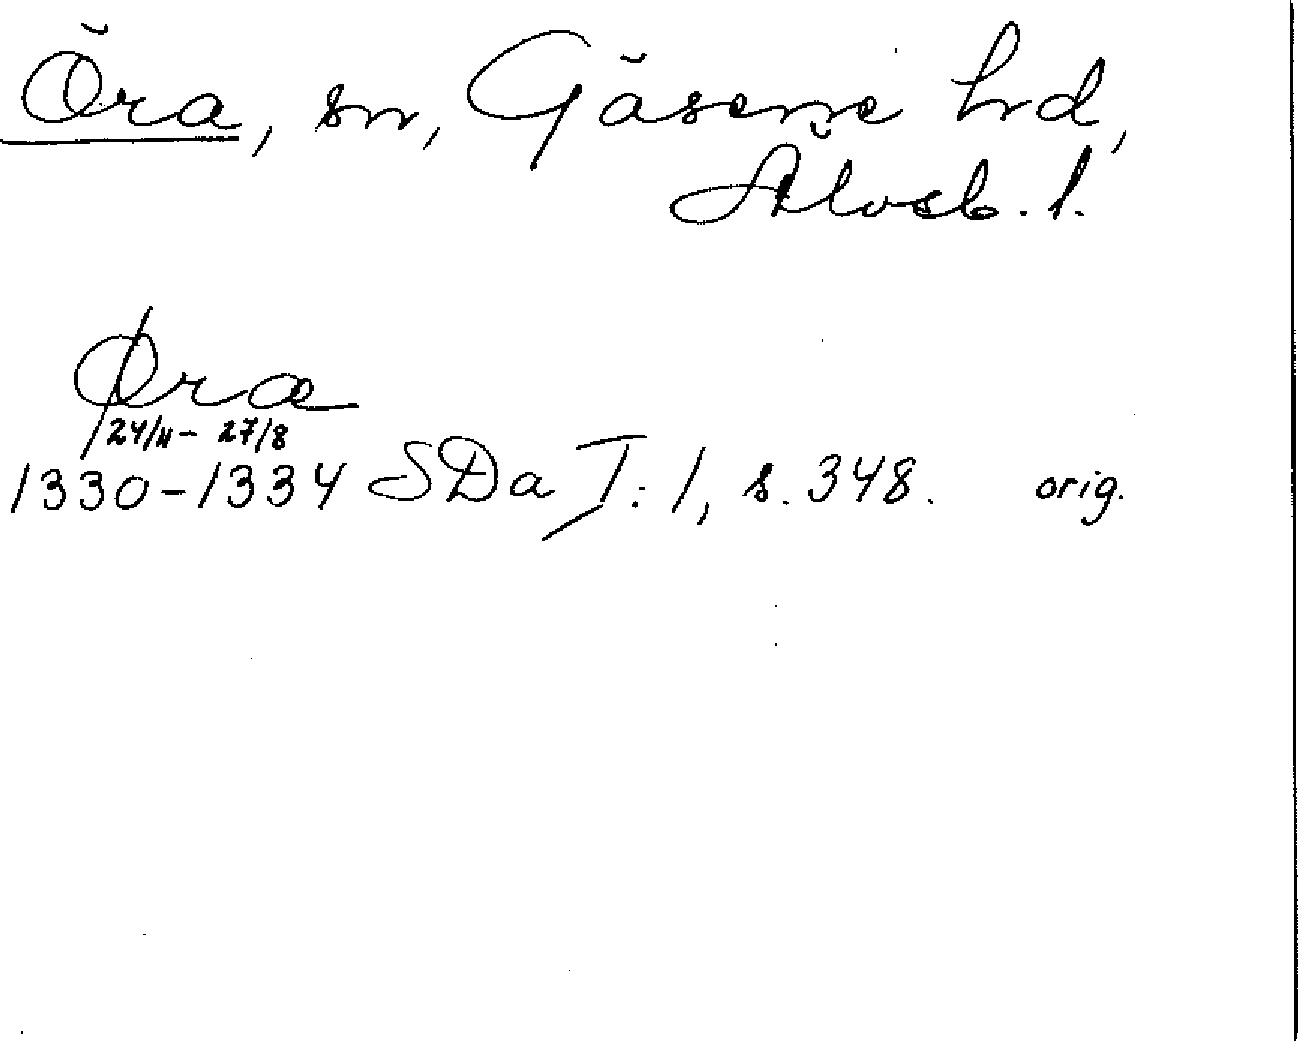 Öra, sn, Gäsene hrd,
Älvsb. l.
Øra
24/11 - 27/8
1330-1334 SDa I: 1, s. 348. orig.